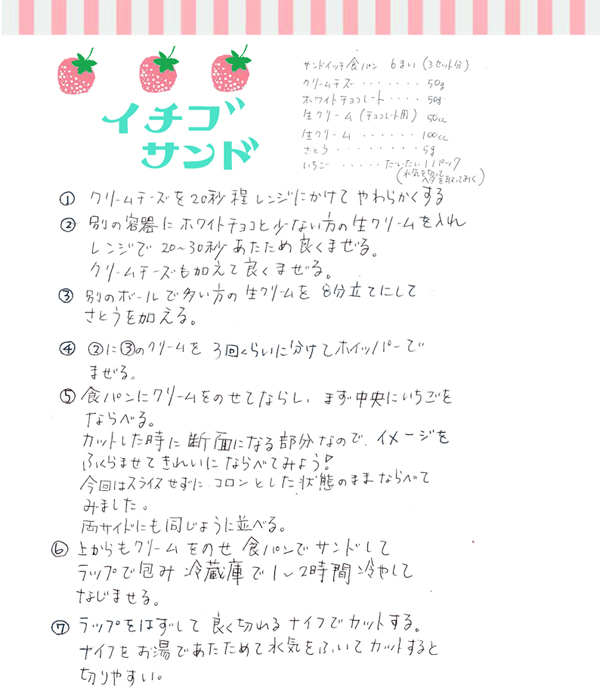 イチゴ
サンド
サンドイッチ食パン 6まい(3セット分)
クリームチーズ ‥‥‥‥ 50g
ホワイトチョコレート ‥‥ 50g
生クリーム(チョコレート用) 50cc
生クリーム ‥‥‥ 100cc
さとう ‥‥‥‥‥ 5g
いちご ‥‥‥ だいたい1パック
(水気を切って
ヘタを取っておく)
① クリームチーズを20秒程レンジにかけてやわらかくする
② 別の容器にホワイトチョコと少ない方の生クリームを入れ
レンジで20~30秒あたため良くまぜる。
クリームチーズも加えて良くまぜる。
③ 別のボールで多い方の生クリームを8分立てにして
さとうを加える。
④ ②に③のクリームを3回くらいに分けてホイッパーで
まぜる。
⑤ 食パンにクリームをのせてならし、まず中央にいちごを
ならべる。
カットした時に断面になる部分なので、イメージを
ふくらませてきれいにならべてみよう!
今回はスライスせずに、コロンとした状態のままならべて
みました。
両サイドにも同じように並べる。
⑥ 上からもクリームをのせ食パンでサンドして
ラップで包み冷蔵庫で1~2時間冷やして
なじませる。
⑦ ラップをはずして良く切れるナイフでカットする。
ナイフをお湯であたためて水気をふいてカットすると
切りやすい。